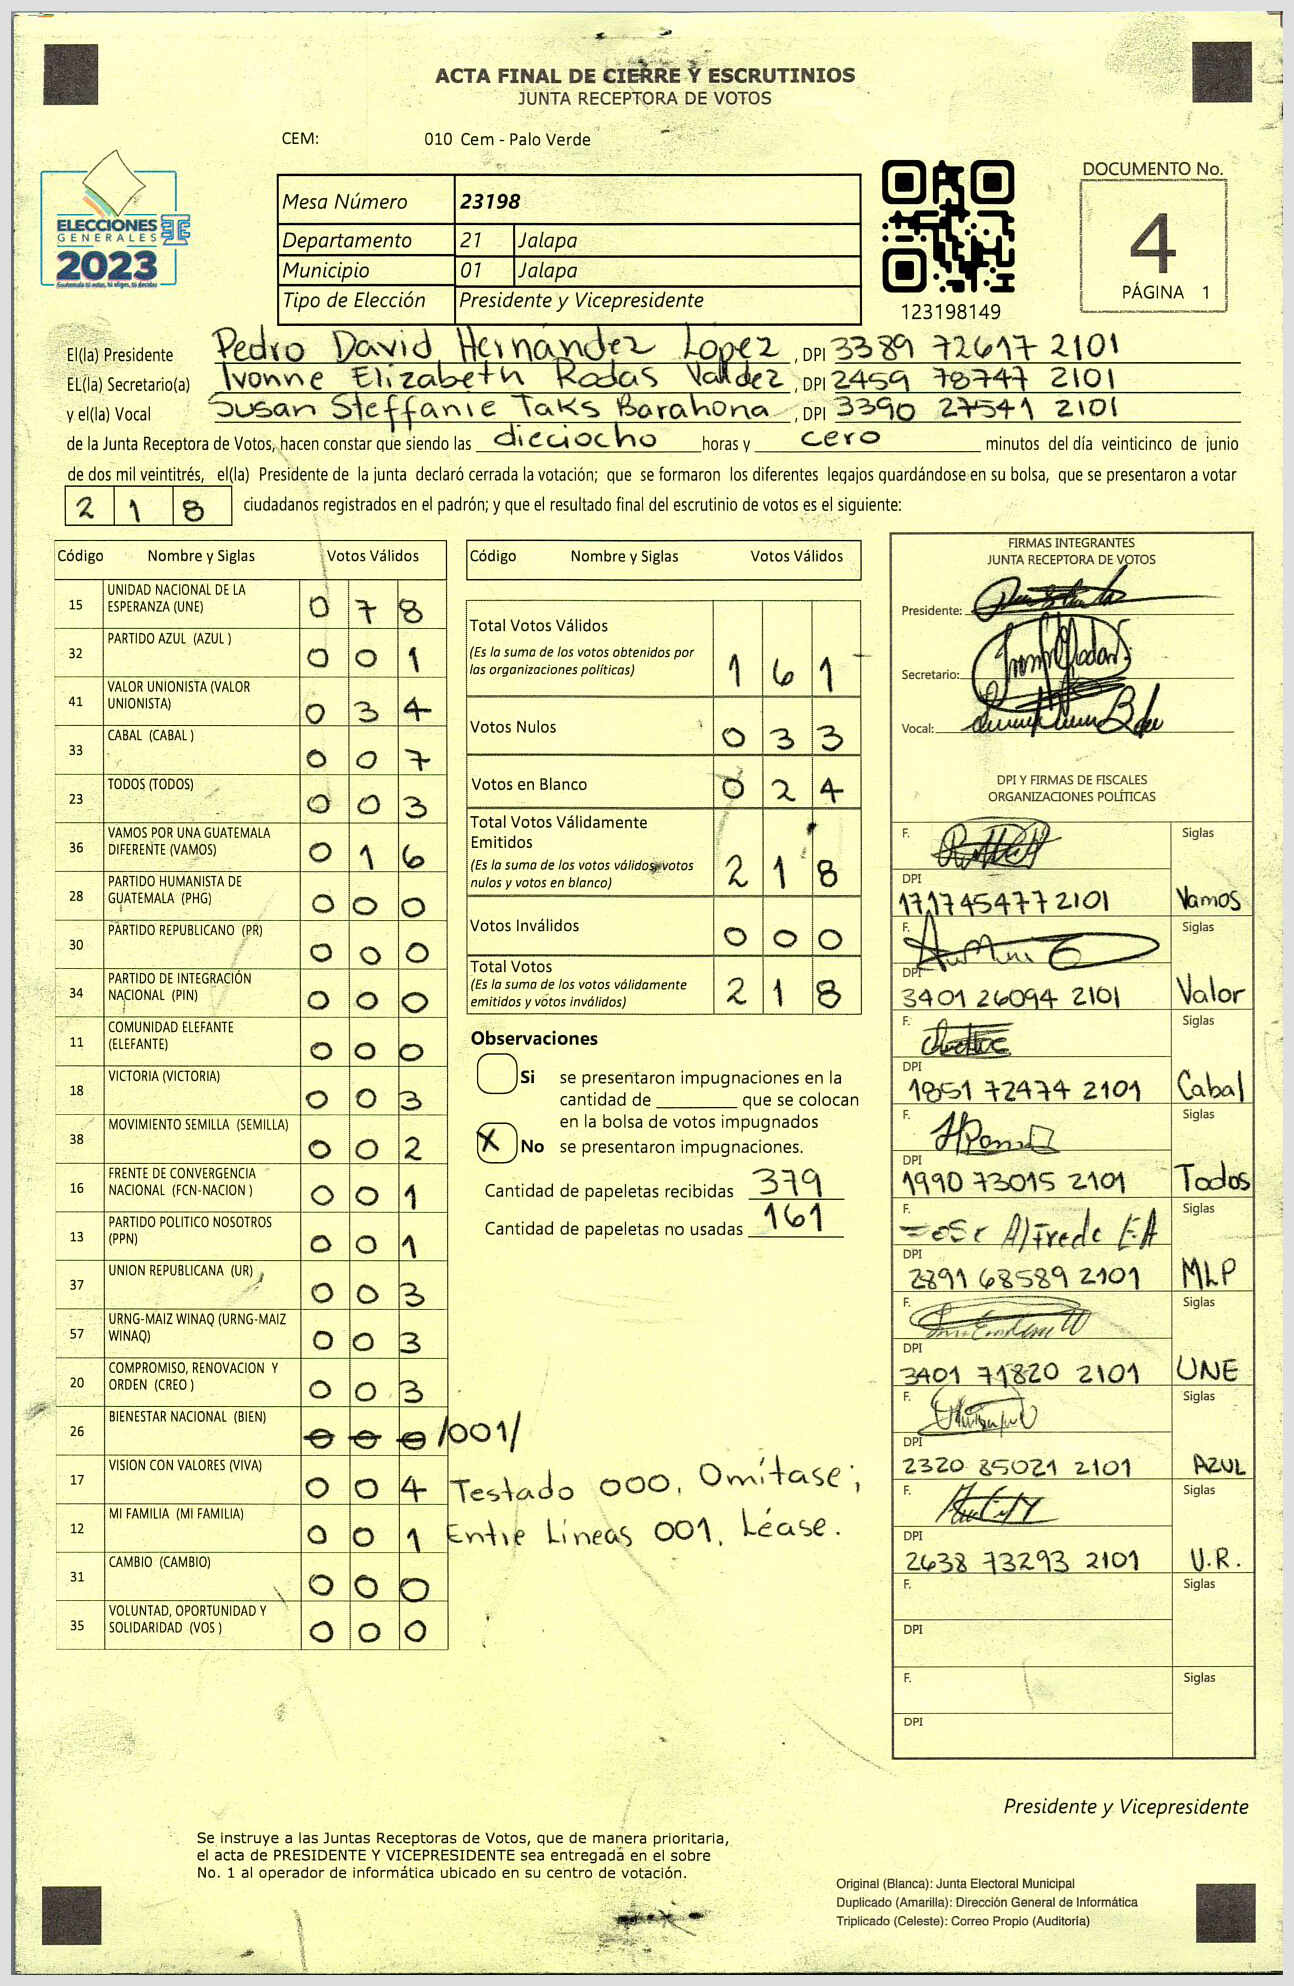 ACTA FINAL DE CIERRE Y ESCRUTINIOS
JUNTA RECEPTORA DE VOTOS
CEM: 010 Cem - Palo Verde
ELECCIONES
GENERALES
2023
Guatemala tú votas, tú eliges, tú decides
Mesa Número 23198
Departamento 21 Jalapa
Municipio 01 Jalapa
Tipo de Elección Presidente y Vicepresidente
123198149
DOCUMENTO No.
4
PÁGINA 1
El(la) Presidente Pedro David Hernández Lopez, DPI 3389 72617 2101
EL(la) Secretario(a) Ivonne Elizabeth Rodas Valdez, DPI 2459 78747 2101
y el(la) Vocal Susan Steffanie Taks Barahona, DPI 3390 27541 2101
de la Junta Receptora de Votos, hacen constar que siendo las dieciocho horas y cero minutos del día veinticinco de junio
de dos mil veintitrés, el(la) Presidente de la junta declaró cerrada la votación; que se formaron los diferentes legajos guardándose en su bolsa, que se presentaron a votar
218 ciudadanos registrados en el padrón; y que el resultado final del escrutinio de votos es el siguiente:
Código Nombre y Siglas Votos Válidos
15 UNIDAD NACIONAL DE LA ESPERANZA (UNE) 0 7 8
32 PARTIDO AZUL (AZUL ) 0 0 1
41 VALOR UNIONISTA (VALOR UNIONISTA) 0 3 4
33 CABAL (CABAL ) 0 0 7
23 TODOS (TODOS) 0 0 3
36 VAMOS POR UNA GUATEMALA DIFERENTE (VAMOS) 0 1 6
28 PARTIDO HUMANISTA DE GUATEMALA (PHG) 0 0 0
30 PARTIDO REPUBLICANO (PR) 0 0 0
34 PARTIDO DE INTEGRACIÓN NACIONAL (PIN) 0 0 0
11 COMUNIDAD ELEFANTE (ELEFANTE) 0 0 0
18 VICTORIA (VICTORIA) 0 0 3
38 MOVIMIENTO SEMILLA (SEMILLA) 0 0 2
16 FRENTE DE CONVERGENCIA NACIONAL (FCN-NACION ) 0 0 1
13 PARTIDO POLITICO NOSOTROS (PPN) 0 0 1
37 UNION REPUBLICANA (UR) 0 0 3
57 URNG-MAIZ WINAQ (URNG-MAIZ WINAQ) 0 0 3
20 COMPROMISO, RENOVACION Y ORDEN (CREO ) 0 0 3
26 BIENESTAR NACIONAL (BIEN) 0 0 0 /001/
17 VISION CON VALORES (VIVA) 0 0 4 Testado 000, Omítase;
12 MI FAMILIA (MI FAMILIA) 0 0 1 Entre Líneas 001, Léase.
31 CAMBIO (CAMBIO) 0 0 0
35 VOLUNTAD, OPORTUNIDAD Y SOLIDARIDAD (VOS ) 0 0 0
Código Nombre y Siglas Votos Válidos
Total Votos Válidos 1 6 1
(Es la suma de los votos obtenidos por
las organizaciones políticas)
Votos Nulos 0 3 3
Votos en Blanco 0 2 4
Total Votos Válidamente
Emitidos 2 1 8
(Es la suma de los votos válidos, votos
nulos y votos en blanco)
Votos Inválidos 0 0 0
Total Votos 2 1 8
(Es la suma de los votos válidamente
emitidos y votos inválidos)
Observaciones
Si se presentaron impugnaciones en la
cantidad de ________ que se colocan
en la bolsa de votos impugnados
X No se presentaron impugnaciones.
Cantidad de papeletas recibidas 379
Cantidad de papeletas no usadas 161
FIRMAS INTEGRANTES
JUNTA RECEPTORA DE VOTOS
Presidente:
Secretario:
Vocal:
DPI Y FIRMAS DE FISCALES
ORGANIZACIONES POLÍTICAS
F. Siglas
DPI
1717 45477 2101 Vamos
F. Siglas
DPI
3401 26094 2101 Valor
F. Siglas
DPI
1851 72474 2101 Cabal
F. Siglas
DPI
1990 73015 2101 Todos
F. Alfredo EA Siglas
DPI
2891 68589 2101 MLP
F. Siglas
DPI
3401 71820 2101 UNE
F. Siglas
DPI
2320 85021 2101 AZUL
F. Siglas
DPI
2638 73293 2101 U.R.
F. Siglas
DPI
F. Siglas
DPI
Presidente y Vicepresidente
Se instruye a las Juntas Receptoras de Votos, que de manera prioritaria,
el acta de PRESIDENTE Y VICEPRESIDENTE sea entregada en el sobre
No. 1 al operador de informática ubicado en su centro de votación.
Original (Blanca): Junta Electoral Municipal
Duplicado (Amarilla): Dirección General de Informática
Triplicado (Celeste): Correo Propio (Auditoría)